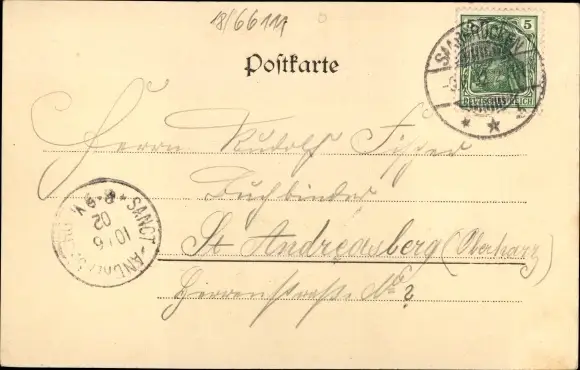 18/66111
Postkarte
5
SAARBRÜCKEN
Herrn Rudolf Fischer
Buchbinder
St. Andreasberg (Oberharz)
Herrenstraße No ?
SANCT-ANDREASBERG
10/6
02
8-9 V